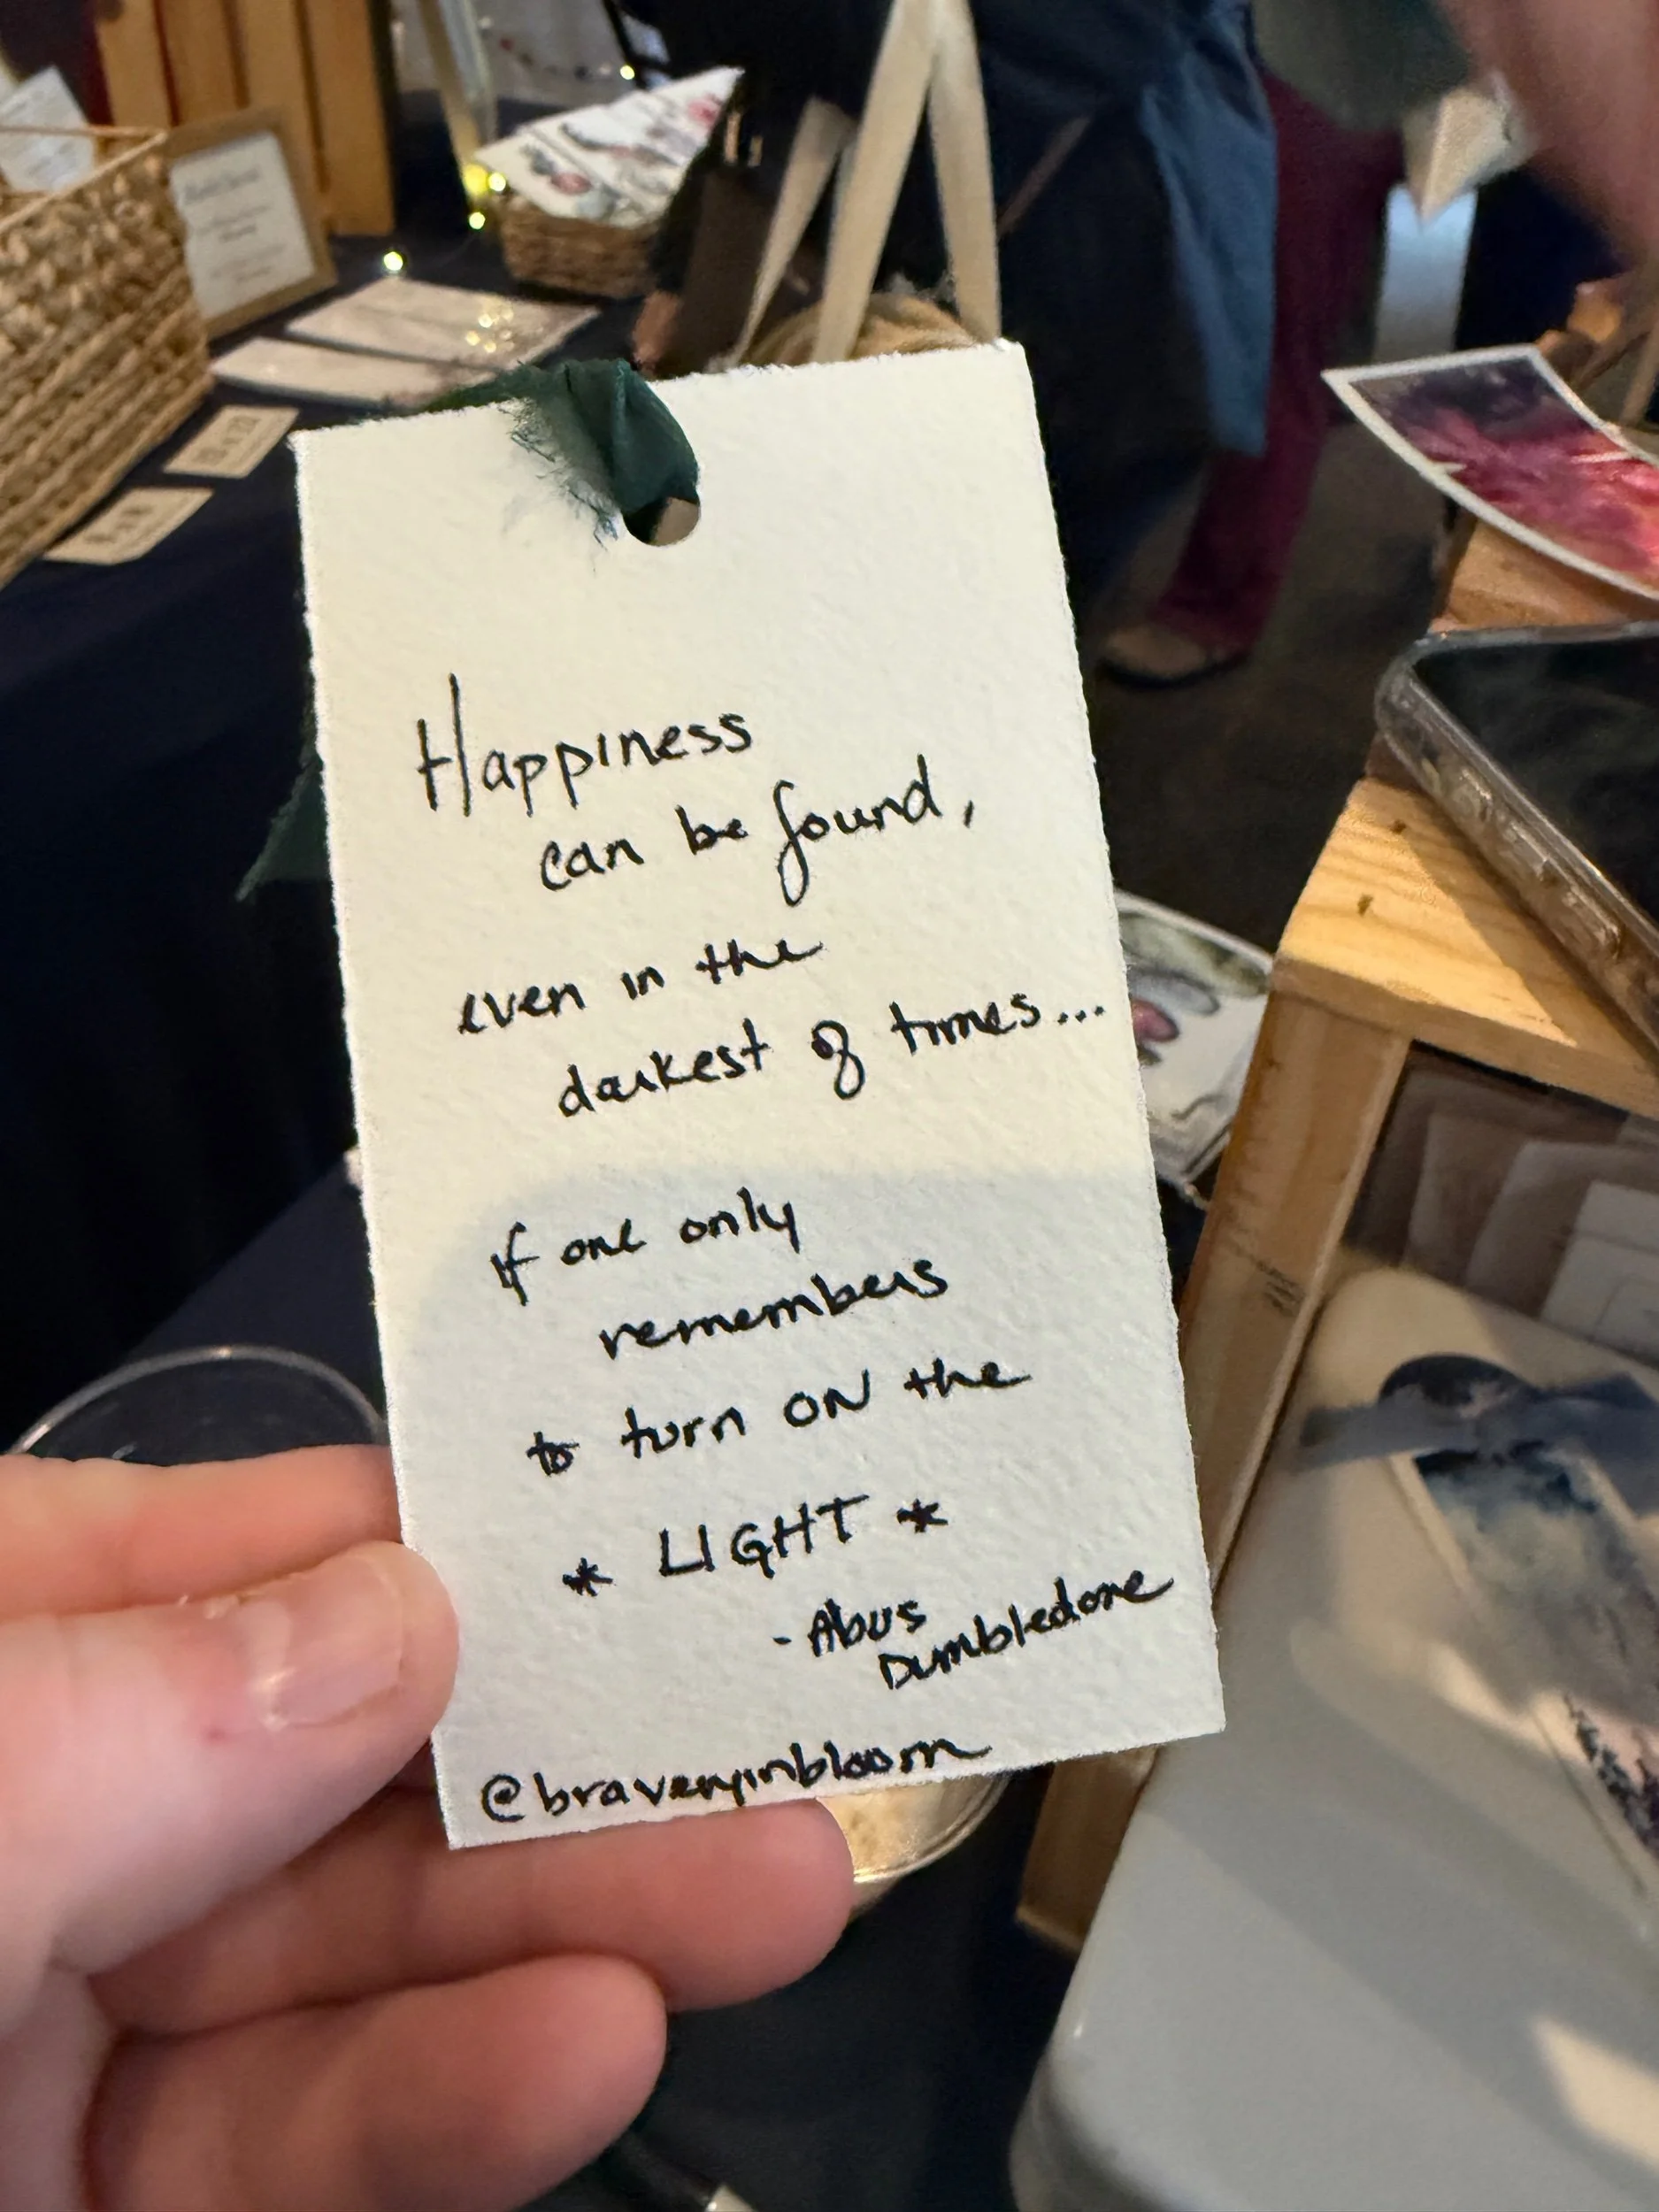 Happiness
can be found,
even in the
darkest of times...
if one only
remembers
to turn ON the
* LIGHT *
- Albus
Dumbledore
@braveryinbloom